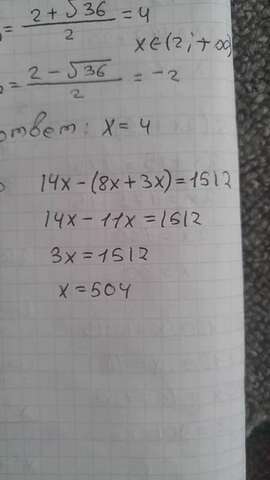 = (2 + √36)/2 = 4
x ∈ (2; + ∞)
= (2 - √36)/2 = -2
ответ: x = 4
14x - (8x + 3x) = 1512
14x - 11x = 1512
3x = 1512
x = 504